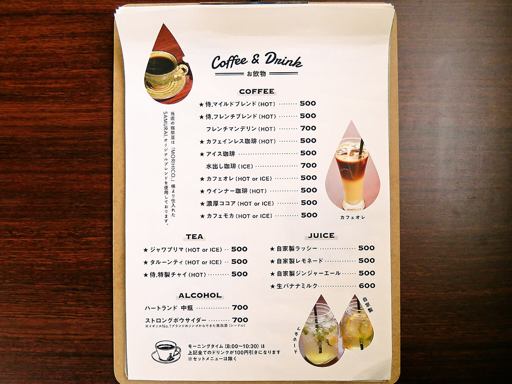 Coffee & Drink
お飲物
当店の珈琲豆は「MORIHICO.」様より仕入れた
SAMURAIオリジナルブレンドを使用しております。
COFFEE
★侍.マイルドブレンド(HOT) ········ 500
★侍.フレンチブレンド(HOT) ········ 500
フレンチマンデリン(HOT) ········ 700
★カフェインレス珈琲(HOT) ········ 500
★アイス珈琲 ········ 500
水出し珈琲(ICE) ········ 700
★カフェオレ(HOT or ICE) ········ 500
★ウインナー珈琲(HOT) ········ 500
★濃厚ココア(HOT or ICE) ········ 500
★カフェモカ(HOT or ICE) ········ 500
カフェオレ
TEA
★ジャワプリマ(HOT or ICE) ·· 500
★タルーンティ(HOT or ICE) ·· 500
★侍.特製チャイ(HOT) ········ 500
JUICE
★自家製ラッシー ········ 500
★自家製レモネード ········ 500
★自家製ジンジャーエール ········ 500
★生バナナミルク ········ 600
ALCOHOL
ハートランド 中瓶 ········ 700
ストロングボウサイダー ········ 700
レモネード
自家製
モーニングタイム(8:00〜10:30)は
上記全てのドリンクが100円引きになります
※セットメニューは除く